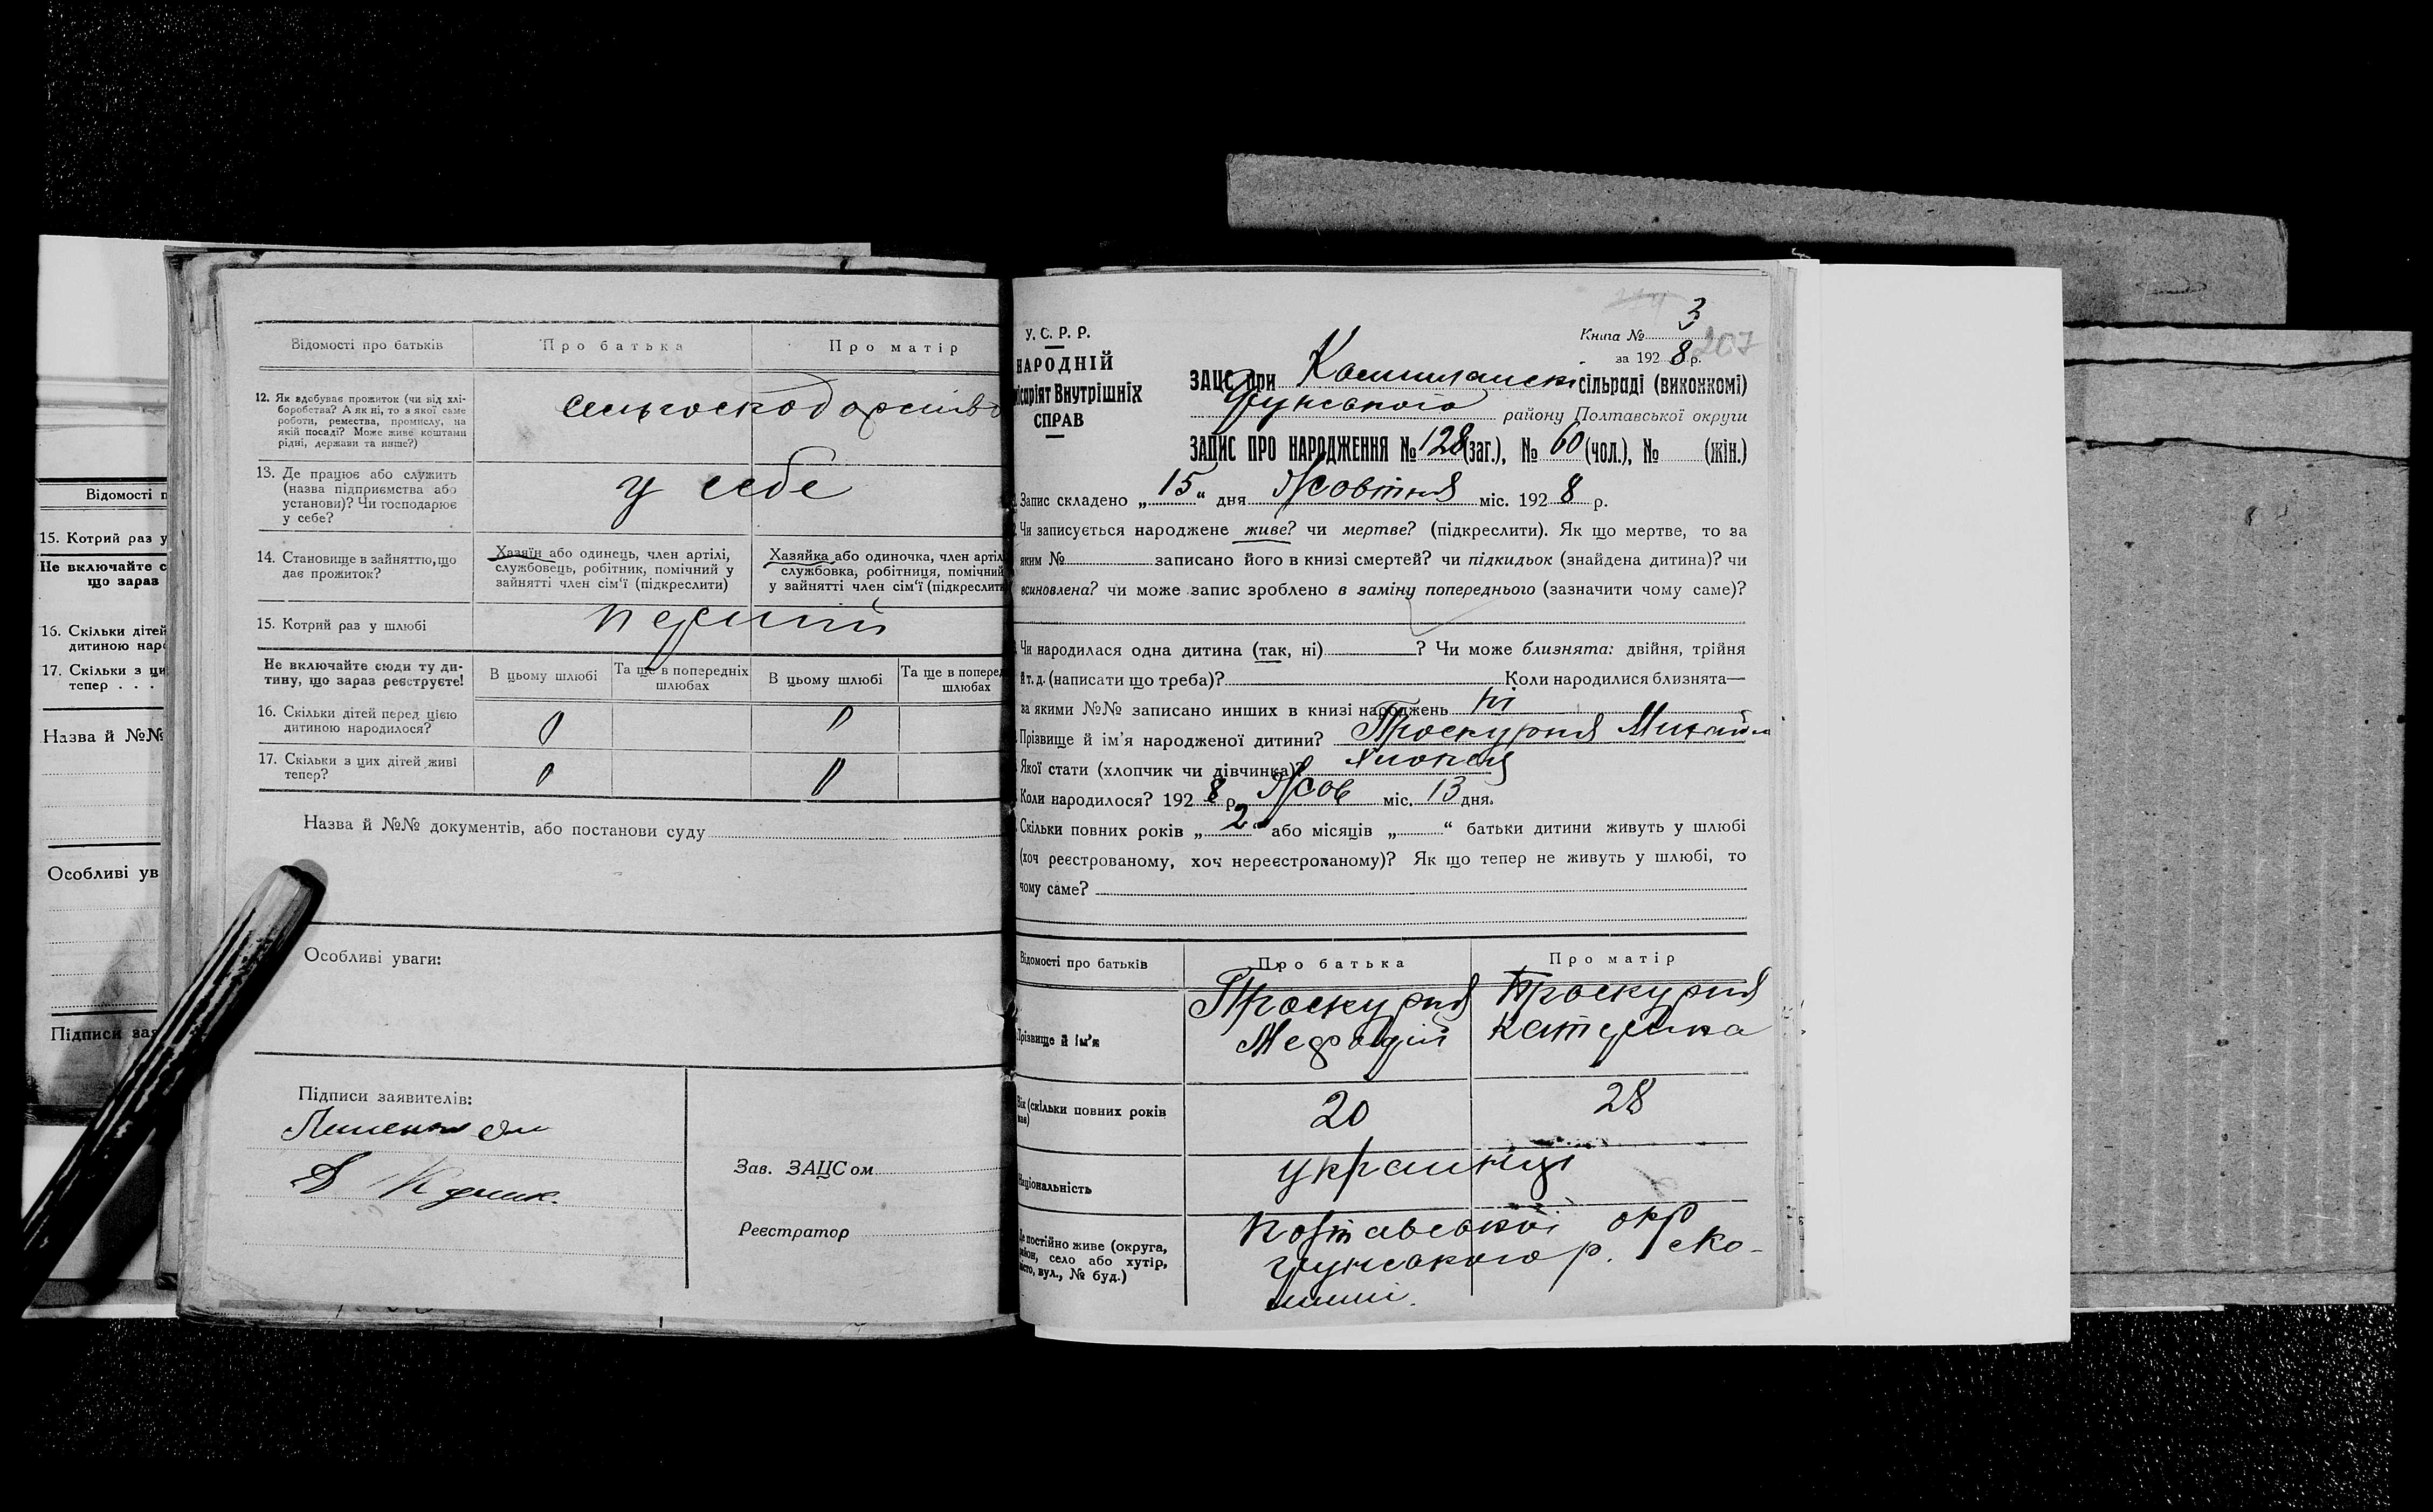 Відомості п
15. Котрий раз у
Не включайте с
що зараз
16. Скільки дітей
дитиною наро
17. Скільки з ци
тепер . . .
Назва й №№
Особливі ув
Підписи зая
Відомості про батьків
Про батька
Про матір
12. Як здобуває прожиток (чи від хлі-
боробства? А як ні, то з якої саме
роботи, ремества, промислу, на
якій посаді? Може живе коштами
рідні, держави та инше?)
сельгоскодарство
13. Де працює або служить
(назва підприємства або
установи)? Чи господарює
у себе?
у себе
14. Становище в зайняттю, що
дає прожиток?
Хазяїн або одинець, член артілі,
службовець, робітник, помічний у
зайнятті член сім'ї (підкреслити)
Хазяйка або одиночка, член артіл
службовка, робітниця, помічний
у зайнятті член сім'ї (підкреслити
15. Котрий раз у шлюбі
перший
Не включайте сюди ту ди-
тину, що зараз реєструєте!
В цьому шлюбі
Та ще в попередніх
шлюбах
В цьому шлюбі
Та ще в поперед
шлюбах
16. Скільки дітей перед цією
дитиною народилося?
0
0
17. Скільки з цих дітей живі
тепер?
0
0
Назва й №№ документів, або постанови суду
Особливі уваги:
Підписи заявителів:
Зав. ЗАЦСом
Реєстратор
У.С.Р.Р.
НАРОДНІЙ
ісаріят Внутрішніх
СПРАВ
Книга № 3
207
за 1928 р.
ЗАЦС при сільраді (виконкомі)
Грунського району Полтавської округи
ЗАПИС ПРО НАРОДЖЕННЯ № 128 (заг.), № 60 (чол.), № (жін.)
Запис складено „15" дня Жовтня міс. 1928 р.
Чи записується народжене живе? чи мертве? (підкреслити). Як що мертве, то за
яким № записано його в книзі смертей? чи підкидьок (знайдена дитина)? чи
всиновлена? чи може запис зроблено в заміну попереднього (зазначити чому саме)?
Чи народилася одна дитина (так, ні) ? Чи може близнята: двійня, трійня
й т. д. (написати що треба)? Коли народилися близнята—
за якими №№ записано инших в книзі народжень ні
Прізвище й ім'я народженої дитини? Проскурня Михайло
Якої стати (хлопчик чи дівчинка)? Хлопець
Коли народилось? 1928 р. Жов міс. 13 дня.
Скільки повних років „2" або місяців „ " батьки дитини живуть у шлюбі
(хоч реєстрованому, хоч нереєстрованому)? Як що тепер не живуть у шлюбі, то
чому саме?
Відомості про батьків
Про батька
Про матір
Прізвище й ім'я
Проскурня
Мефодій
Проскурня
Катерина
Вік (скільки повних років
має)
20
28
Національність
українці
Де постійно живе (округа,
район, село або хутір,
місто, вул., № буд.)
Полтавської окр
Грунського р.